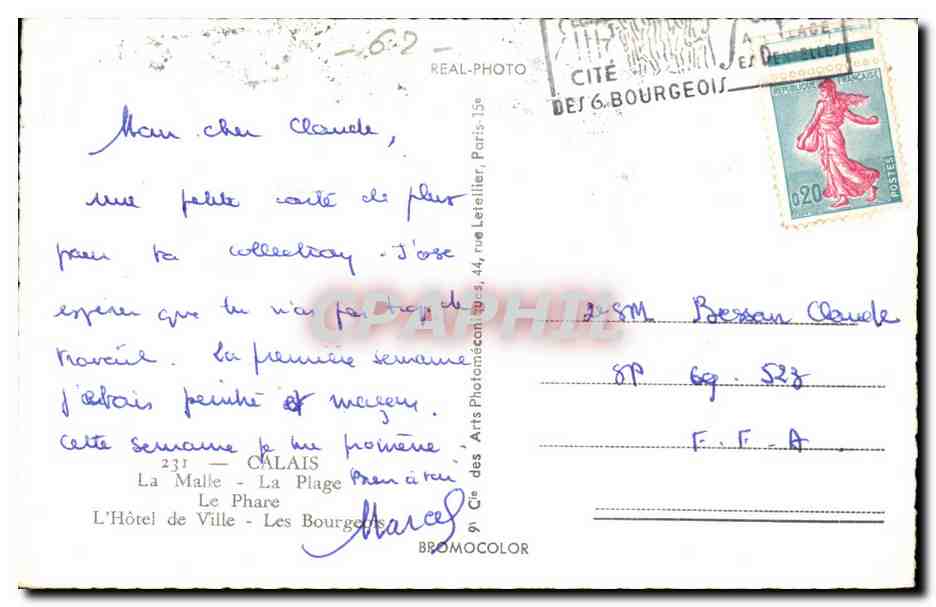 -62-
REAL-PHOTO
CITÉ
DES 6 BOURGEOIS
PLAGE
ES DENTELLES
REPUBLIQUE FRANÇAISE
0,20
POSTES
Mon cher Claude,
une petite carte de plus
pour ta collection. J'ose
espérer que tu n'as pas trop de
travail. La première semaine
j'étais peintre et maçon.
Cette semaine je me promène.
Bien à toi
Marcel
231 — CALAIS
La Malle - La Plage
Le Phare
L'Hôtel de Ville - Les Bourgeois
BROMOCOLOR
Cie des Arts Photomécaniques, 44, rue Letellier, Paris-15e
CPAPHIL
2e SM Bessan Claude
SP 69.523
F.F.A.